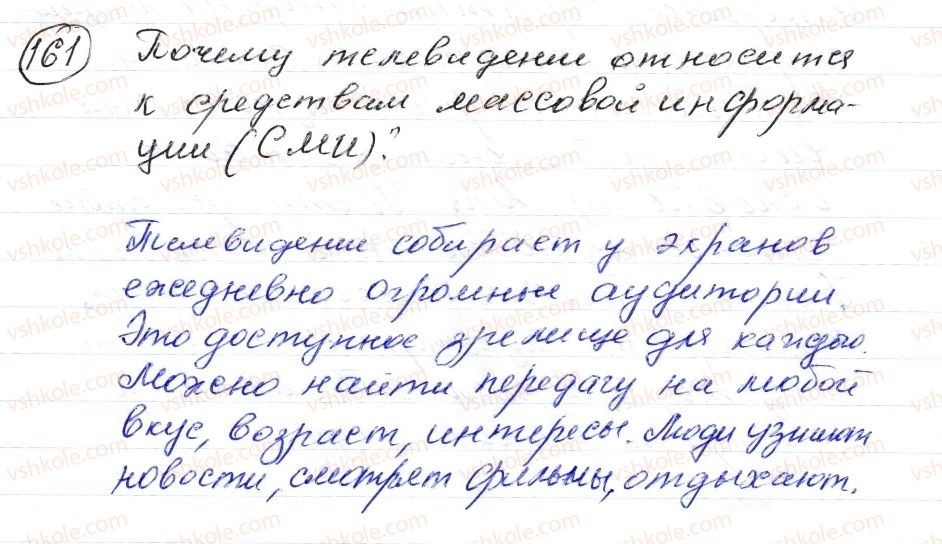 161 Почему телевидение относится
к средствам массовой информа-
ции (СМИ)?
Телевидение собирает у экранов
ежедневно огромные аудитории.
Это доступное зрелище для каждого.
Можно найти передачу на любой
вкус, возраст, интересы. Люди узнают
новости, смотрят фильмы, отдыхают.
vshkole.com